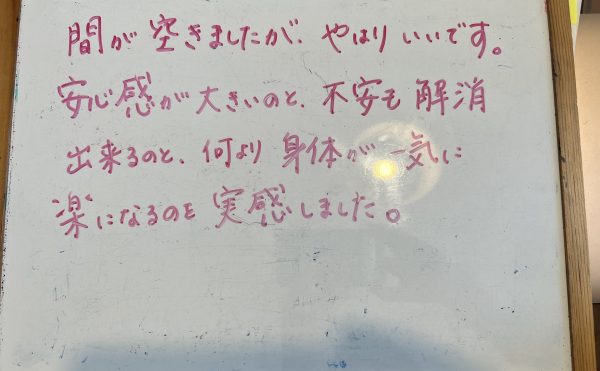 間が空きましたが、やはりいいです。
安心感が大きいのと、不安も解消
出来るのと、何より身体が一気に
楽になるのを実感しました。